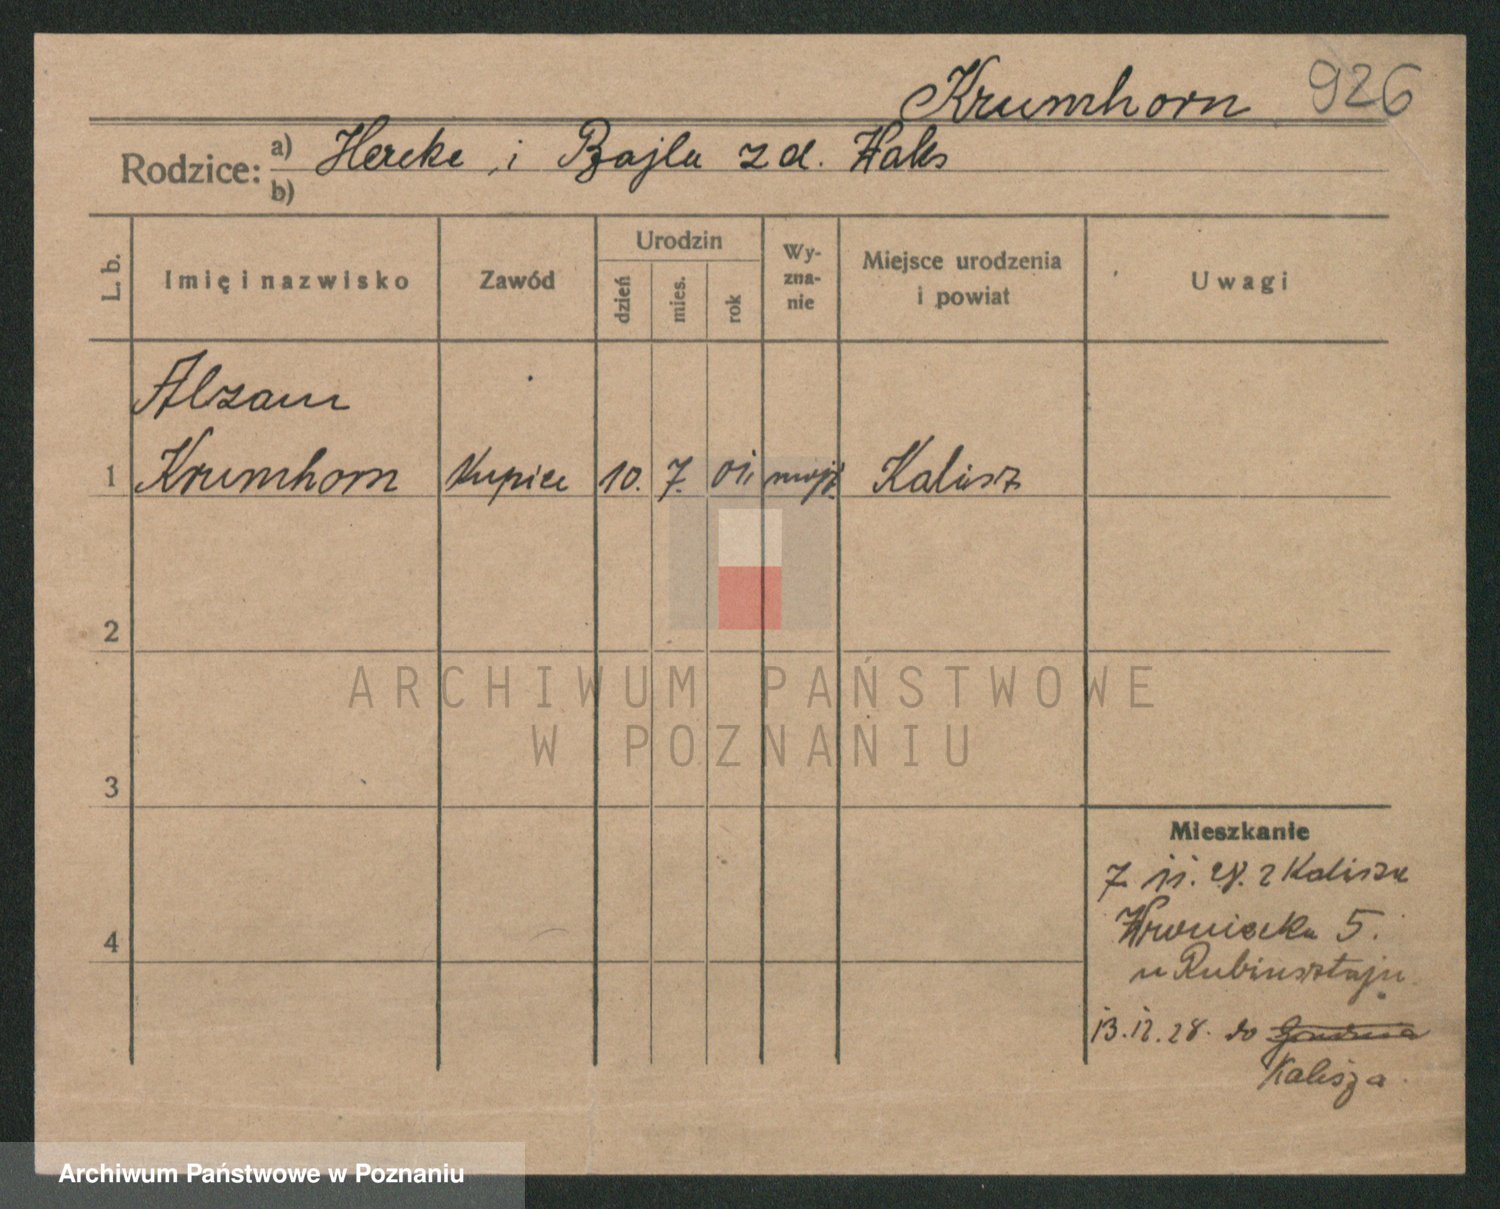 Krumhorn 926
Rodzice: a) Hercke i Bajla z d. Waks
b)
L. b. Imię i nazwisko Zawód Urodzin dzień mies. rok Wy-zna-nie Miejsce urodzenia i powiat Uwagi
Krumhorn
1 Kupiec 10. 7. 01. mojż. Kalisz
2
3
4
Mieszkanie
7. 11. 28. z Kalisza
Wroniecka 5.
u Rubinsztajn
13. 12. 28. do
Kalisza.
ARCHIWUM PAŃSTWOWE
W POZNANIU
Archiwum Państwowe w Poznaniu